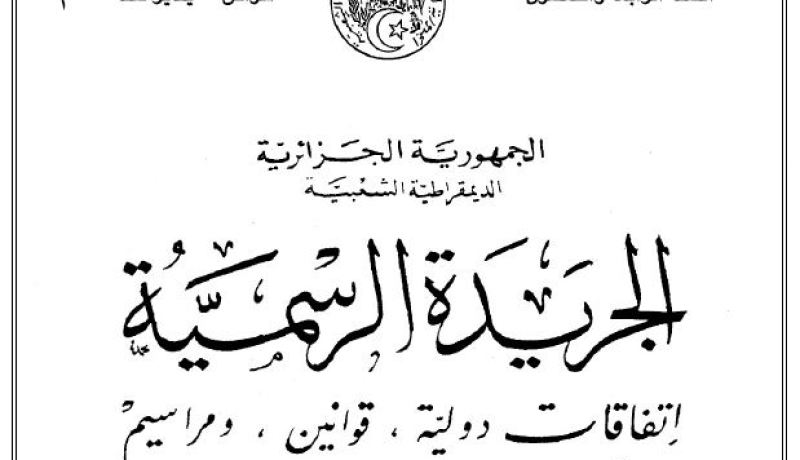 الجمهوريّة الجزائريّة
الديمقراطيّة الشعبيّة
الجريدة الرسميّةُ
إتفاقات دوليّة ، قوانين ، ومراسيمْ